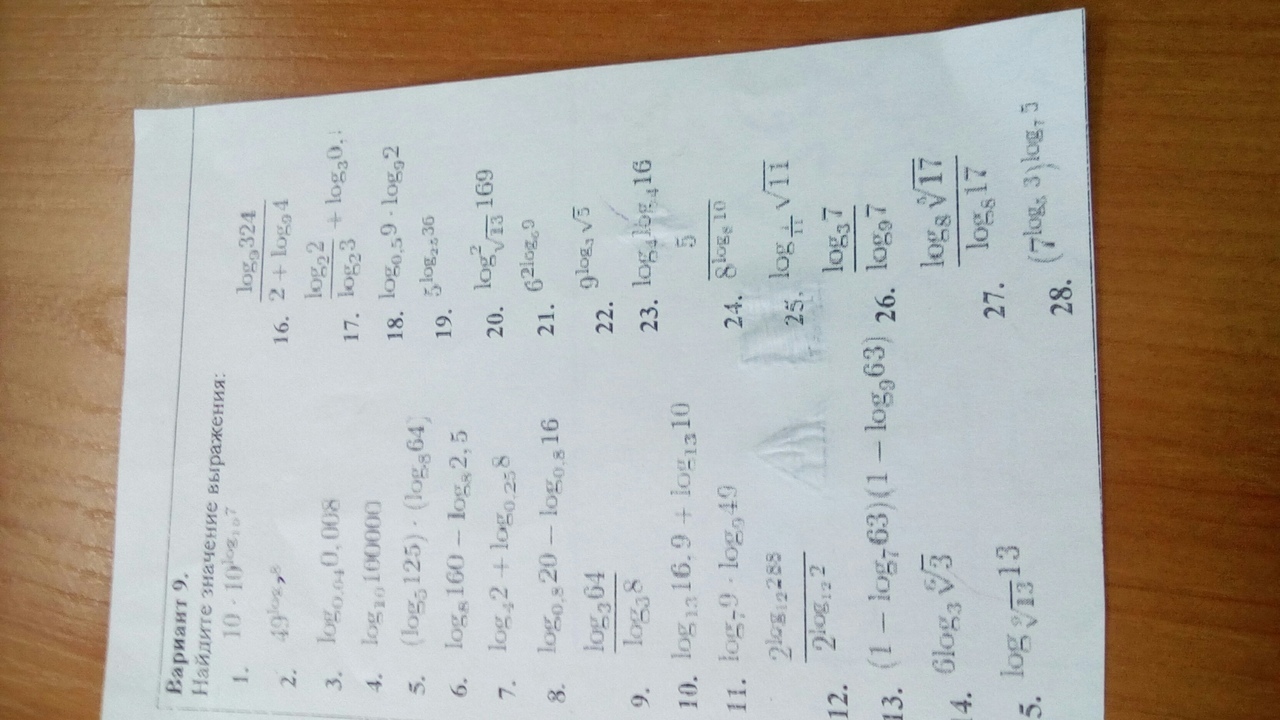 Вариант 9.
Найдите значение выражения:
1. 10 · 10^{log_{10} 7}
2. 49^{log_7 8}
3. log_{0,04} 0,008
4. log_{10} 100000
5. (log_5 125) · (log_8 64)
6. log_8 160 − log_8 2,5
7. log_4 2 + log_{0,25} 8
8. log_{0,8} 20 − log_{0,8} 16
9. log_3 64 / log_3 8
10. log_{13} 16,9 + log_{13} 10
11. log_7 9 · log_9 49
12. 2^{log_{12} 288} / 2^{log_{12} 2}
13. (1 − log_7 63)(1 − log_9 63)
14. 6log_3 ⁶√3
5. log_{⁹√13} 13
16. log_9 324 / 2 + log_9 4
17. log_2 2 / log_2 3 + log_3 0,
18. log_{0,5} 9 · log_9 2
19. 5^{log_{25} 36}
20. log²_{√13} 169
21. 6^{2log_6 9}
22. 9^{log_3 √5}
23. log_4 log_4 16
24. 5 / 8^{log_8 10}
25. log_{1/11} √11
26. log_3 7 / log_9 7
27. log_8 ⁵√17 / log_8 17
28. (7^{log_5 3})^{log_7 5}